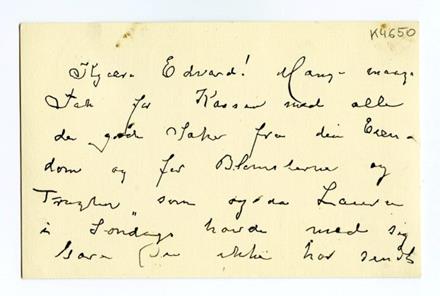 K4650
Kjære Edvard! Mange mange
Tak for Kassen med alle
de gode Saker fra din Eien-
dom og for Blomsterne og
Frugten som også Lauren
i Söndags havde med sig
bare Du ikke har sendt